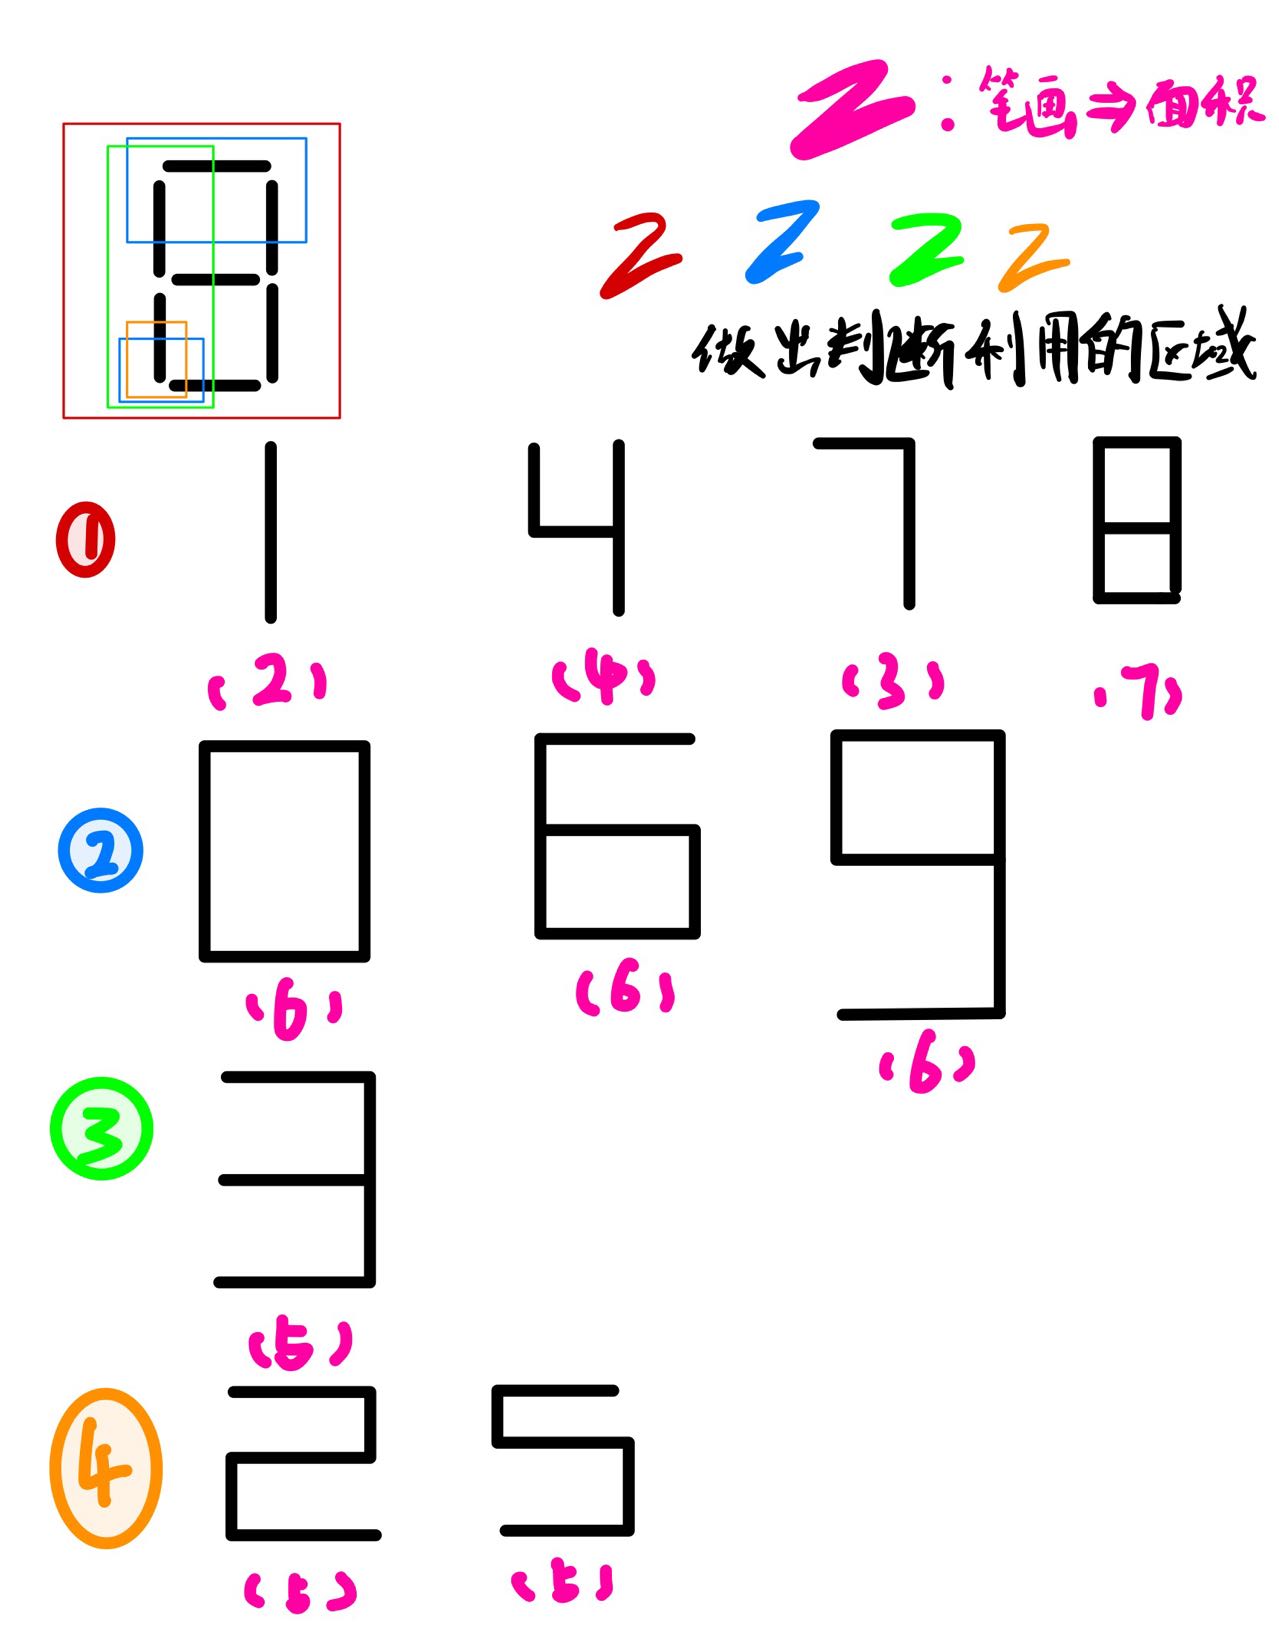 Z：笔画⇒面积
Z Z Z Z
做出判断利用的区域
① 1 4 7 8
(2) (4) (3) (7)
② 0 6 9
(6) (6) (6)
③ 3
(5)
④ 2 5
(5) (5)